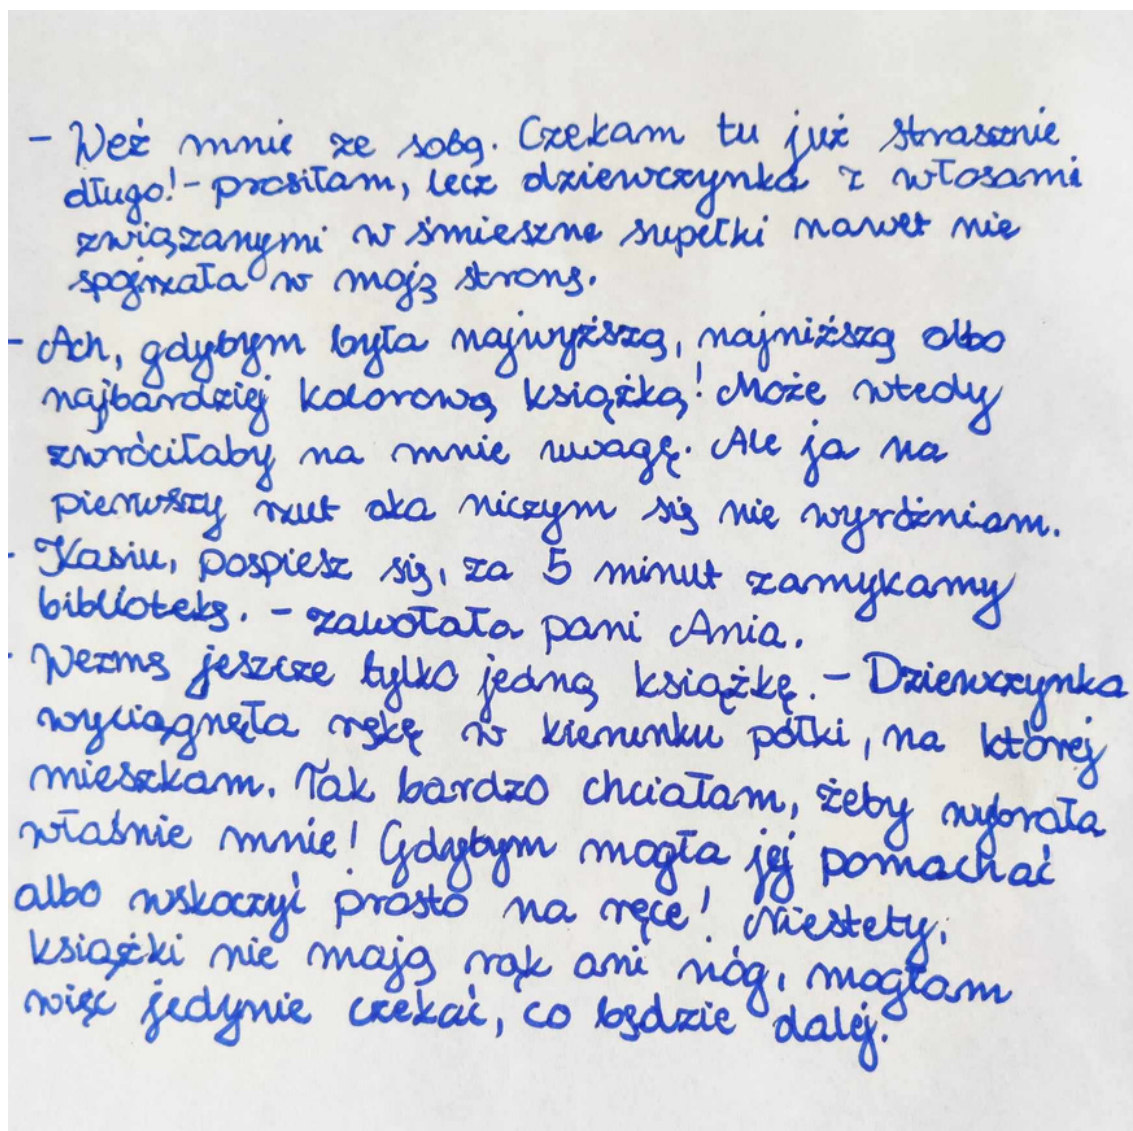 - Weź mnie ze sobą. Czekam tu już strasznie
długo! - prosiłam, lecz dziewczynka z włosami
związanymi w śmieszne supełki nawet nie
spojrzała w moją stronę.
- Ach, gdybym była najwyższą, najniższą albo
najbardziej kolorową książką! Może wtedy
zwróciłaby na mnie uwagę. Ale ja na
pierwszy rzut oka niczym się nie wyróżniam.
- Kasiu, pospiesz się, za 5 minut zamykamy
bibliotekę. - zawołała pani Ania.
- Wezmę jeszcze tylko jedną książkę. - Dziewczynka
wyciągnęła rękę w kierunku półki, na której
mieszkam. Tak bardzo chciałam, żeby wybrała
właśnie mnie! Gdybym mogła jej pomachać
albo wskoczyć prosto na ręce! Niestety,
książki nie mają rąk ani nóg, mogłam
więc jedynie czekać, co będzie dalej.